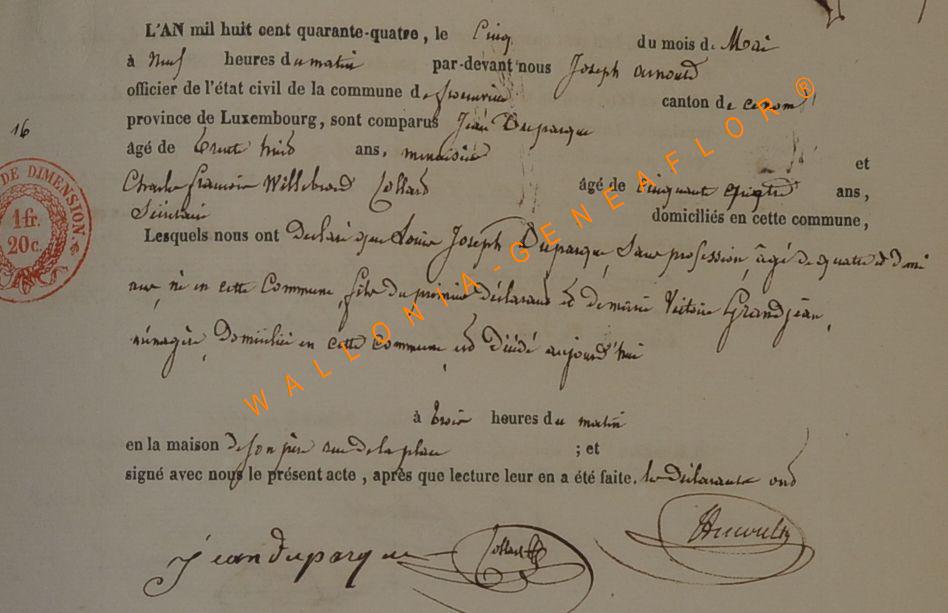 L'AN mil huit cent quarante-quatre, le Cinq du mois de Mai
à Neuf heures du matin par-devant nous Joseph Arnould
officier de l'état civil de la commune de canton de
province de Luxembourg, sont comparus Jean Duparque
âgé de trente ans, menuisier et
Charles François Willebrord Collard âgé de Cinquante quatre ans,
domiciliés en cette commune,
Lesquels nous ont Déclaré que Louis Joseph Duparque, Sans profession, âgé de quatre et demi
ans, né en cette Commune, fils du premier déclarant et de marie Victoire Grandjean,
ménagère, Domiciliée en cette Commune, est décédé aujourd'hui
à trois heures du matin
en la maison de son père rue de la place ; et
signé avec nous le présent acte, après que lecture leur en a été faite. les Déclarants ont
jean duparque Collard
16
DE DIMENSION
1fr.
20c.
WALLONIA-GENEAFLOR®